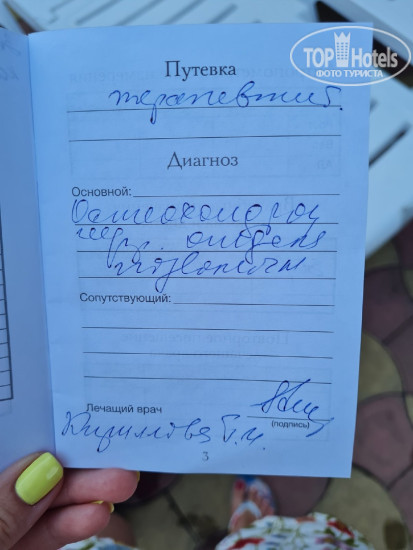 TOP Hotels
ФОТО ТУРИСТА
Путевка
Диагноз
Основной:
Остеохондроз
отдела
позвоночн
Сопутствующий:
Лечащий врач
(подпись)
Кириллова Г.И.
3